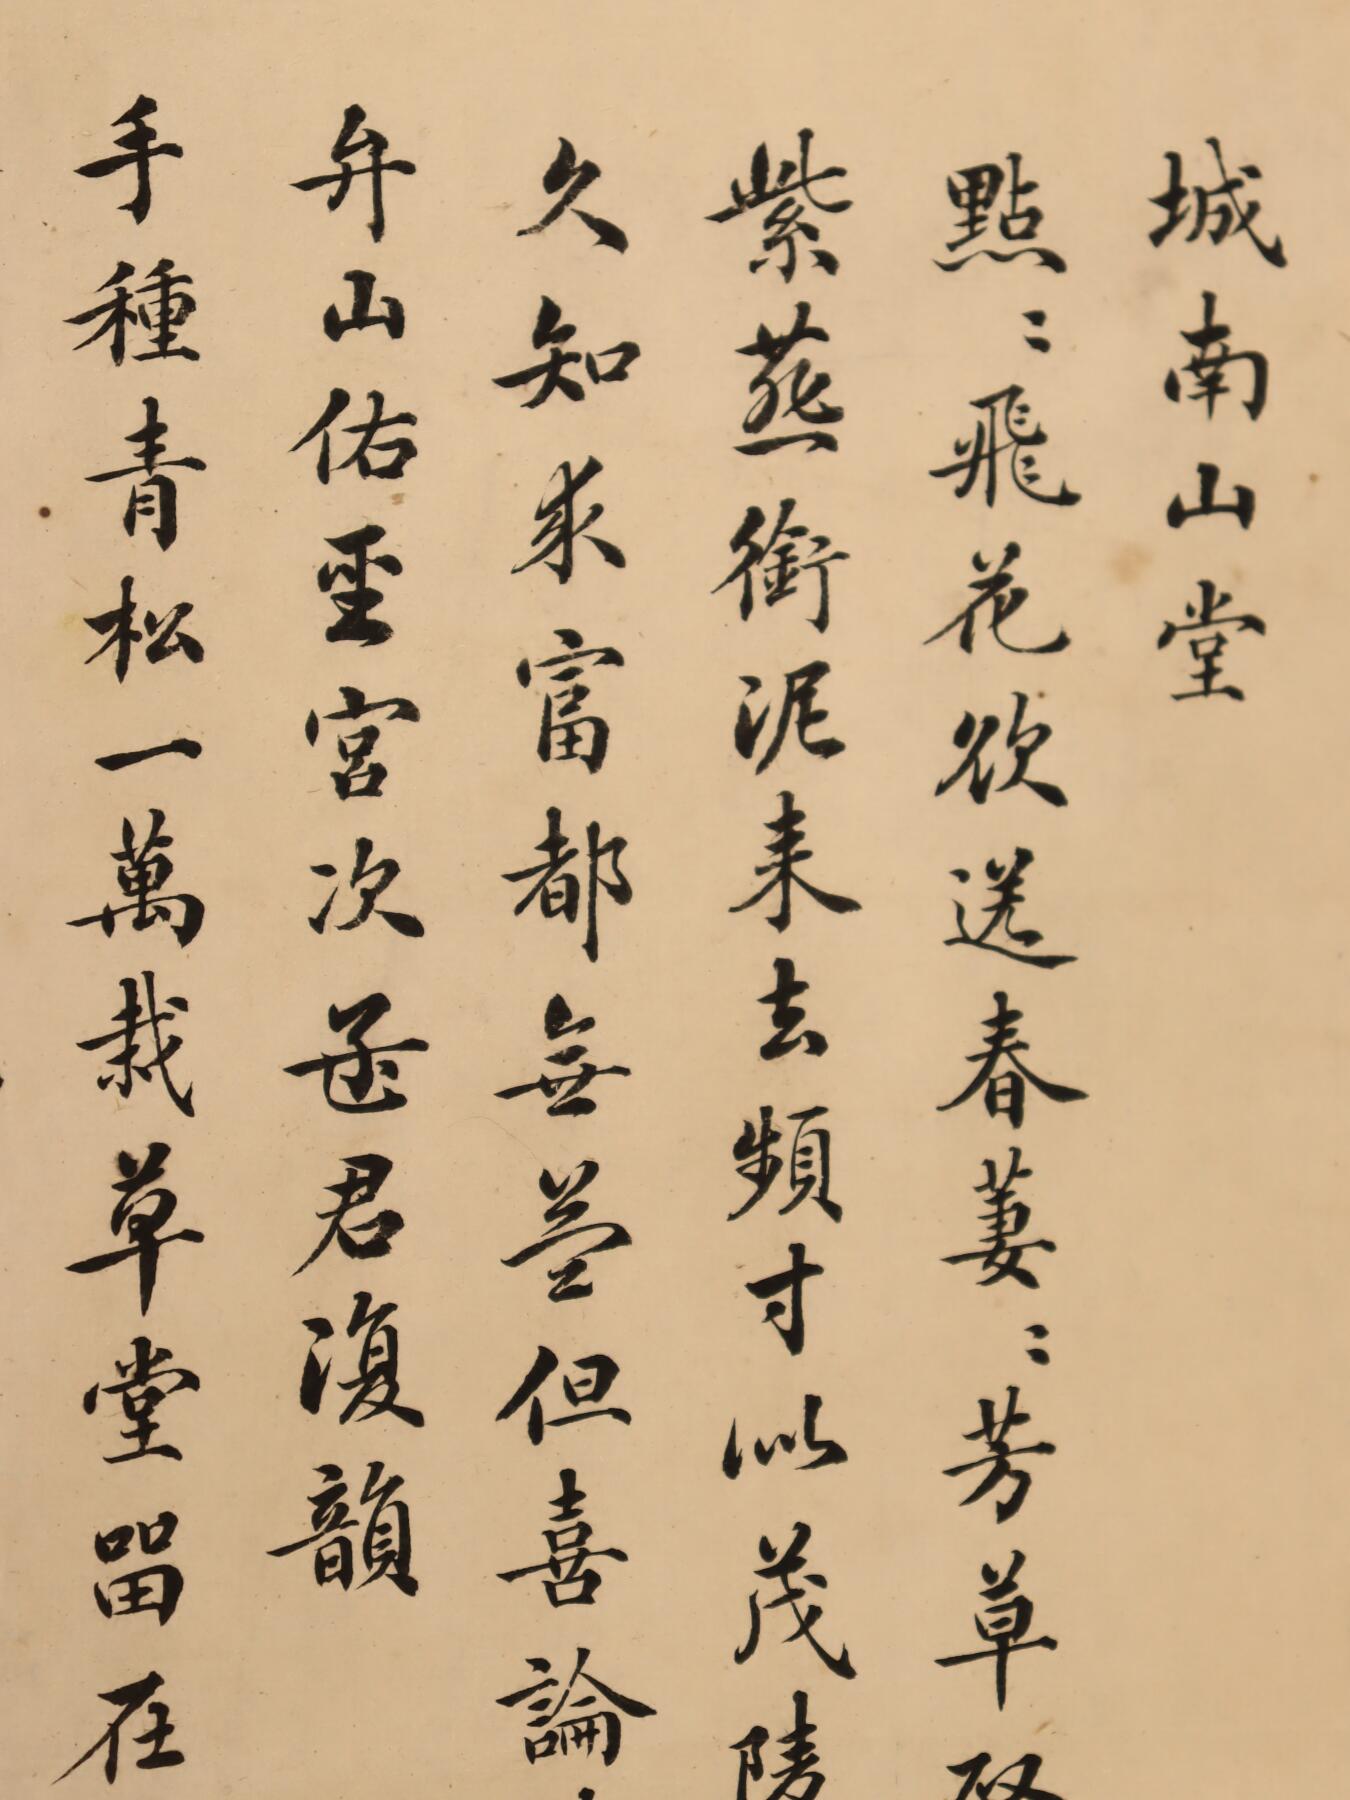 城南山堂
點〻飛花欲送春萋〻芳草
紫燕銜泥来去頻寸以茂陵
久知求富都無益但喜論
弁山佑聖宮次孟君復韻
手種青松一萬栽草堂留在